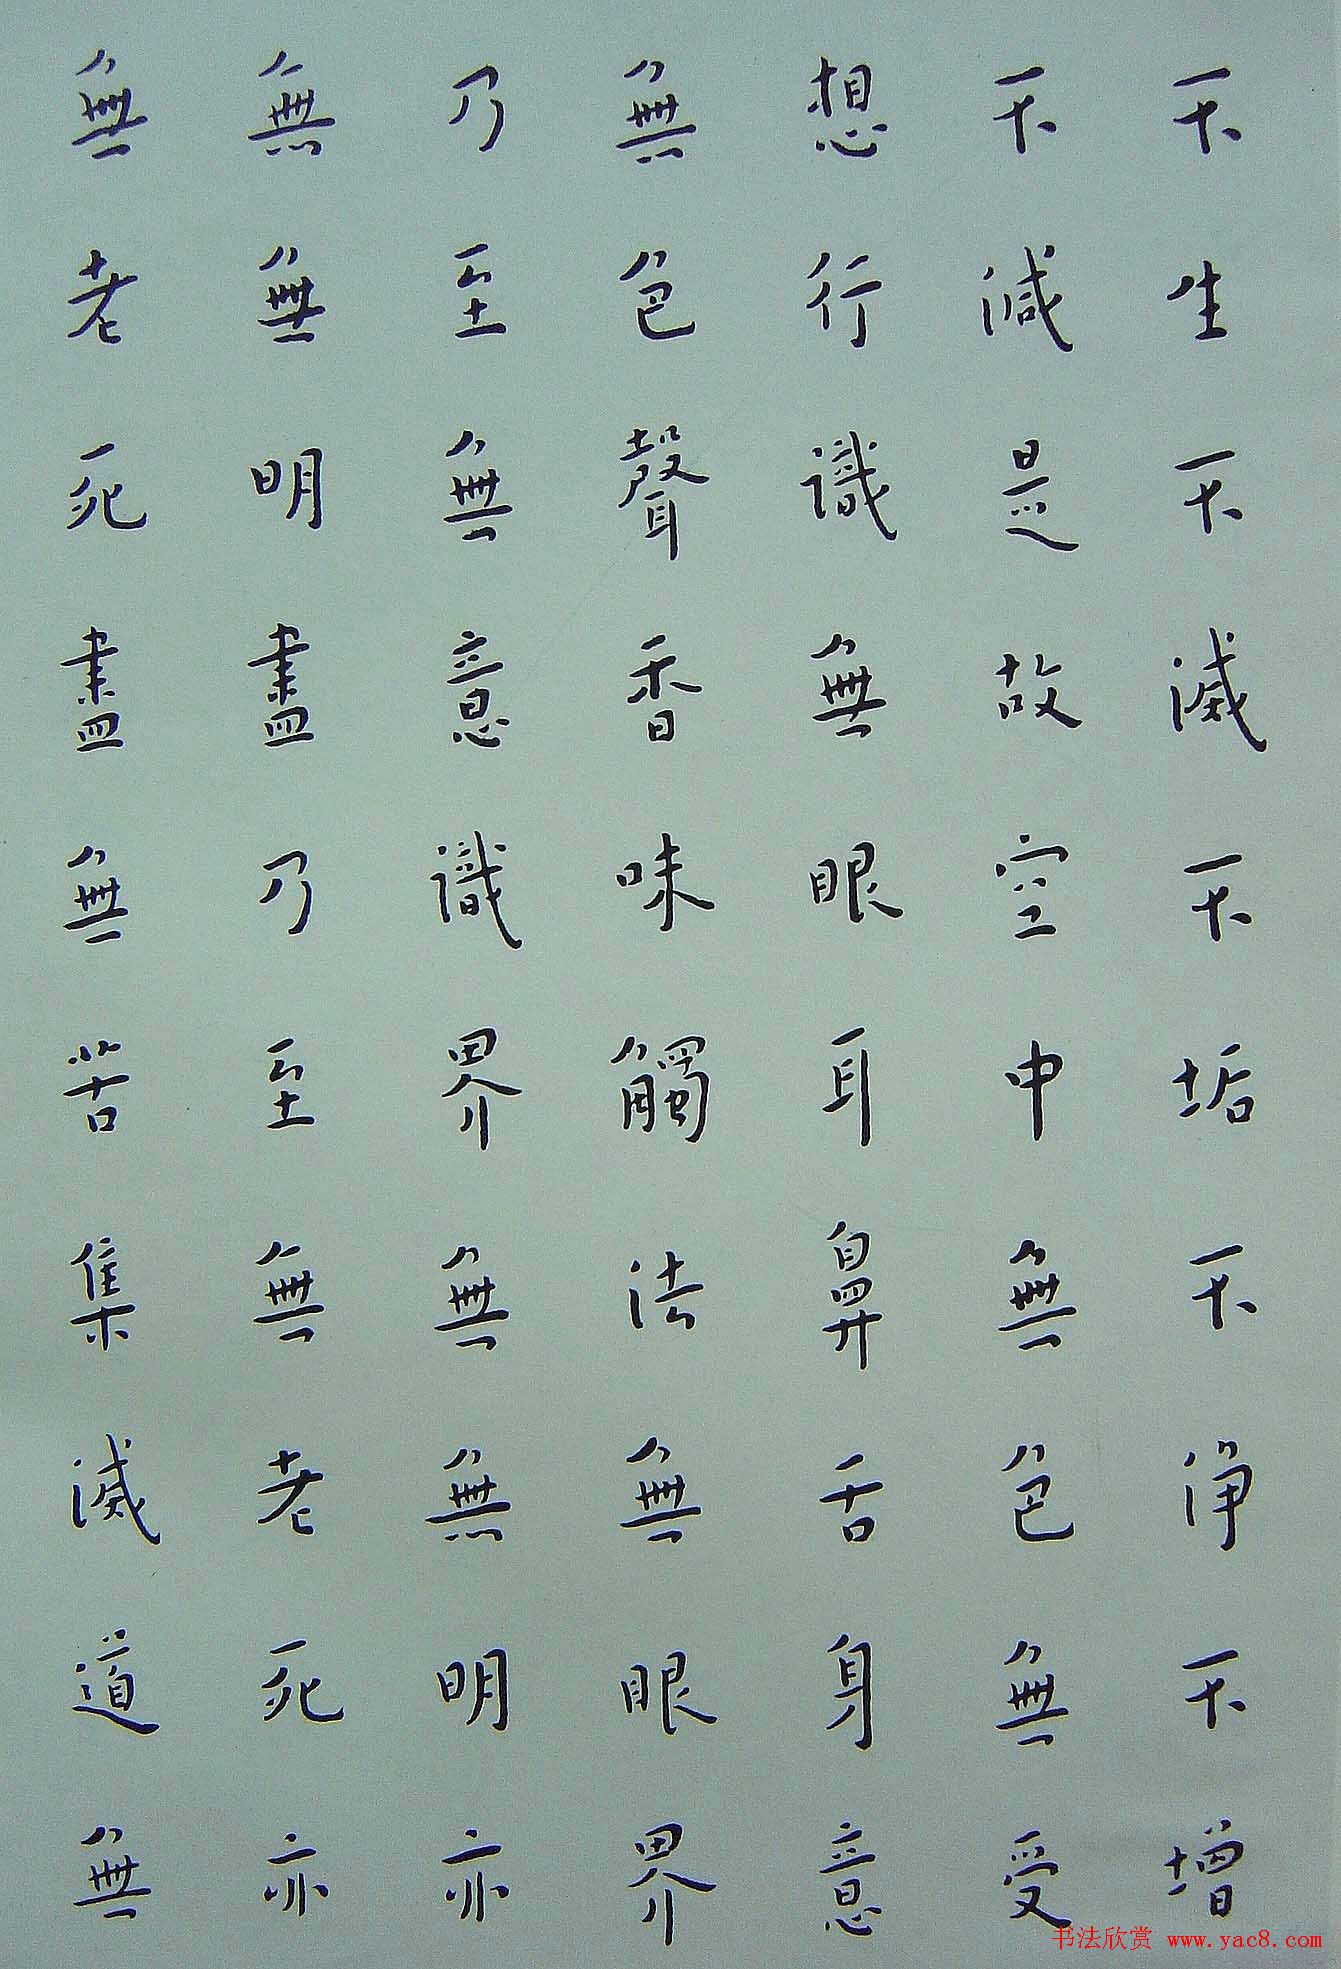 不生不滅不垢不淨不增
不減是故空中無色無受
想行識無眼耳鼻舌身意
無色聲香味觸法無眼界
乃至無意識界無無明亦
無無明盡乃至無老死亦
無老死盡無苦集滅道無
书法欣赏 www.yac8.com